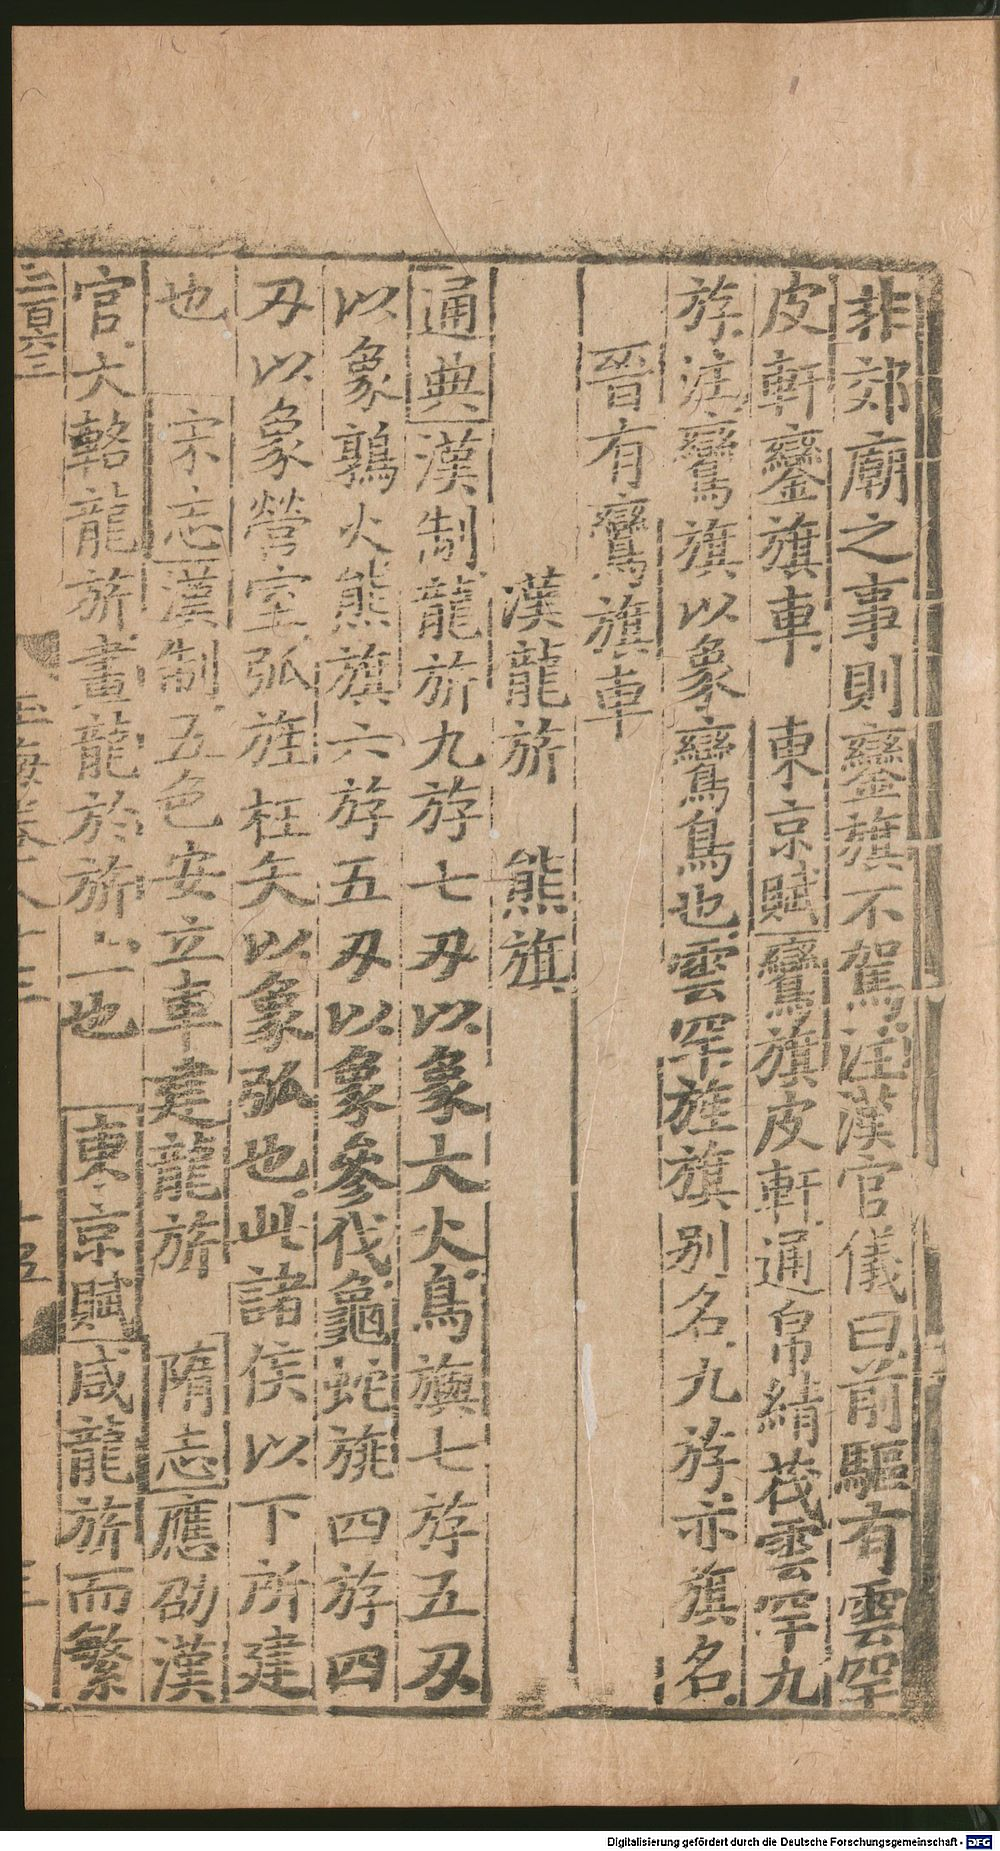 非郊廟之事則鑾旗不駕注漢官儀曰前驅有雲罕
皮軒鑾旗車 東京賦鸞旗皮軒通帛綪茷雲罕九
斿注鸞旗以象鸞鳥也雲罕旌旗別名九斿亦旗名
晉有鸞旗車
漢龍旂 熊旗
通典漢制龍旂九斿七刄以象大火鳥旟七斿五刄
以象鶉火熊旗六斿五刄以象參伐龜蛇旐四斿四
刄以象營室弧旌枉矢以象弧也此諸侯以下所建
也 宗志漢制五色安立車建龍旂 隋志應劭漢
官大輅龍旂畫龍於旂上也 東京賦咸龍旂而繁
三百六三
玉海卷八十三
Digitalisierung gefördert durch die Deutsche Forschungsgemeinschaft - DFG